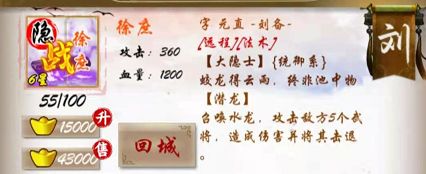 隐
战
徐庶
6星
55/100
15000 升
43000 售
徐庶
攻击：360
血量：1200
回城
字 元直 -刘备-
[远程][法术]
【大隐士】{统御系}
蛟龙得云雨，终非池中物
【潜龙】
召唤水龙，攻击敌方5个武
将，造成伤害并将其击退
。
刘